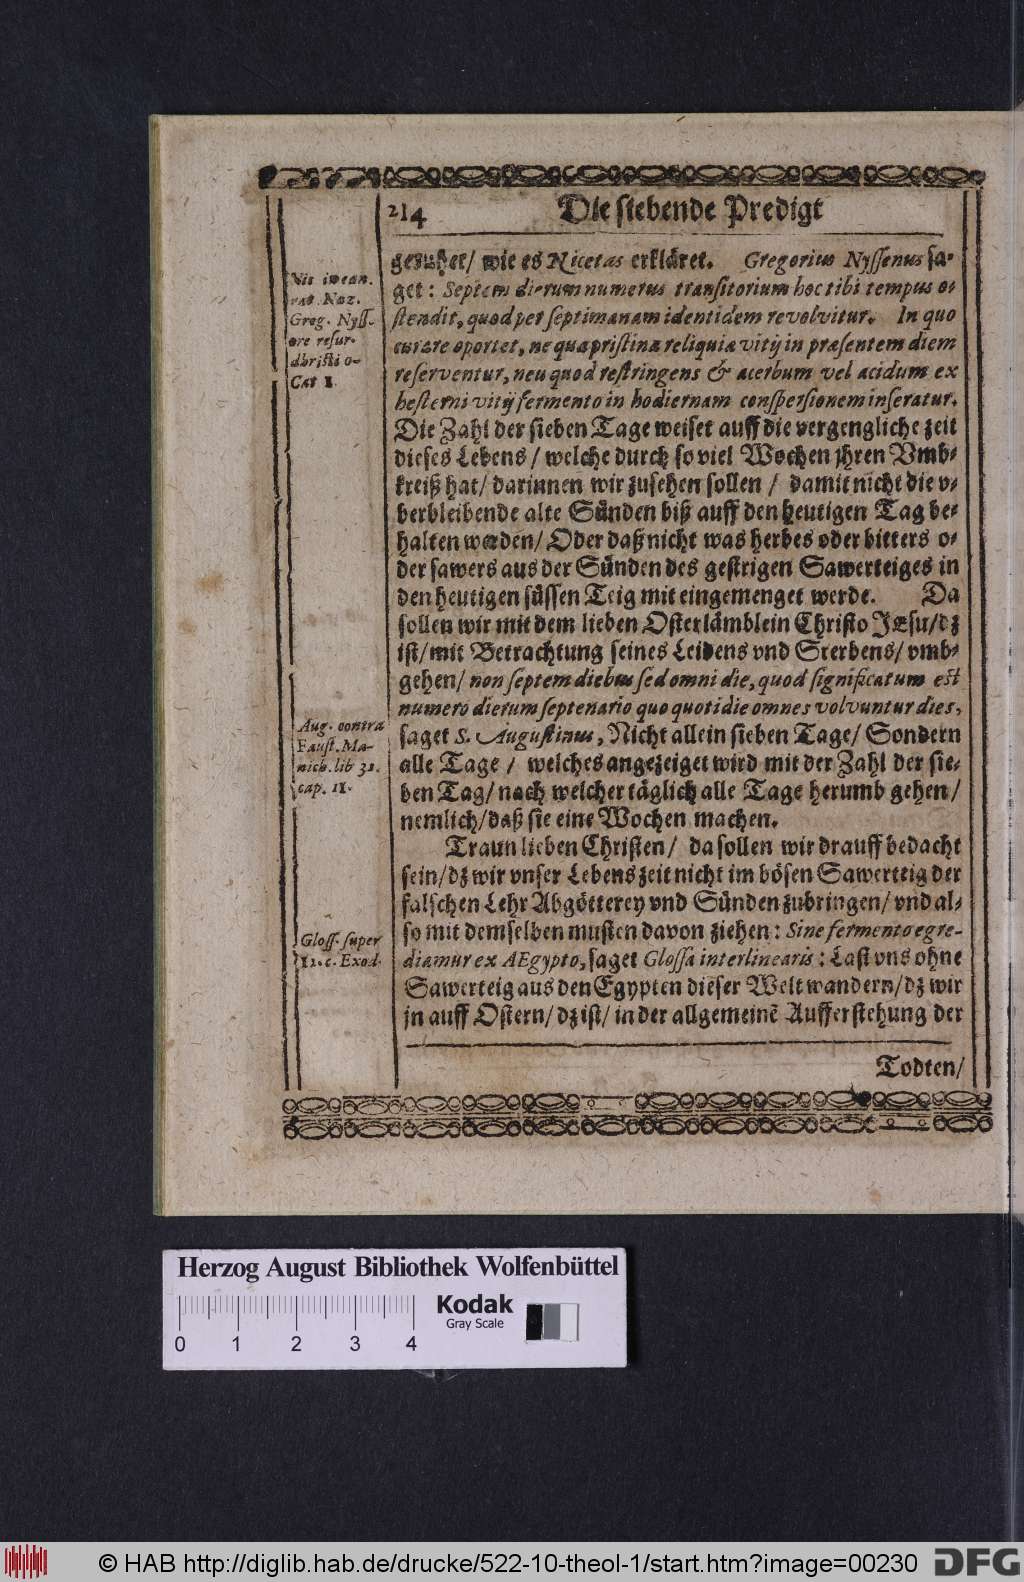 214 Die siebende Predigt
geruhet/ wie es Nicetas erkläret. Gregorius Nyssenus sa-
get: Septem dierum numerus transitorium hoc tibi tempus o-
stendit, quod per septimanam identidem revolvitur. In quo
curare oportet, ne quæ pristinæ reliquiæ vitij in præsentem diem
reserventur, neu quod restringens & acerbum vel acidum ex
hesterni vitij fermento in hodiernam conspersionem inseratur.
Die Zahl der sieben Tage weiset auff die vergengliche zeit
dieses Lebens/ welche durch so viel Wochen jhren Vmb-
kreiß hat/ darinnen wir zusehen sollen/ damit nicht die v-
berbleibende alte Sünden biß auff den heutigen Tag be-
halten werden/ Oder daß nicht was herbes oder bitters o-
der sawers aus der Sünden des gestrigen Sawerteiges in
den heutigen süssen Teig mit eingemenget werde. Da
sollen wir mit dem lieben Osterlämblein Christo JEsu/ dz
ist/ mit Betrachtung seines Leidens vnd Sterbens/ vmb-
gehen/ non septem diebus sed omni die, quod significatum est
numero dierum septenario quo quotidie omnes volvuntur dies,
saget S. Augustinus, Nicht allein sieben Tage/ Sondern
alle Tage/ welches angezeiget wird mit der Zahl der sie-
ben Tag/ nach welcher täglich alle Tage herumb gehen/
nemlich/ daß sie eine Wochen machen.
Traun lieben Christen/ da sollen wir drauff bedacht
sein/ dz wir vnser Lebenszeit nicht im bösen Sawerteig der
falschen Lehr Abgötterey vnd Sünden zubringen/ vnd al-
so mit demselben musten davon ziehen: Sine fermento egre-
diamur ex AEgypto, saget Glossa interlinearis: Last vns ohne
Sawerteig aus den Egypten dieser Welt wandern/ dz wir
jn auff Ostern/ dz ist/ in der allgemeinē Aufferstehung der
Todten/
Naz.
Greg. Nyss.
Cat 1.
Aug. contra
Faust. Ma-
nich. lib 31.
cap. 11.
Gloss. super
12. c. Exod.
Herzog August Bibliothek Wolfenbüttel
Kodak
Gray Scale
0 1 2 3 4
© HAB http://diglib.hab.de/drucke/522-10-theol-1/start.htm?image=00230 DFG